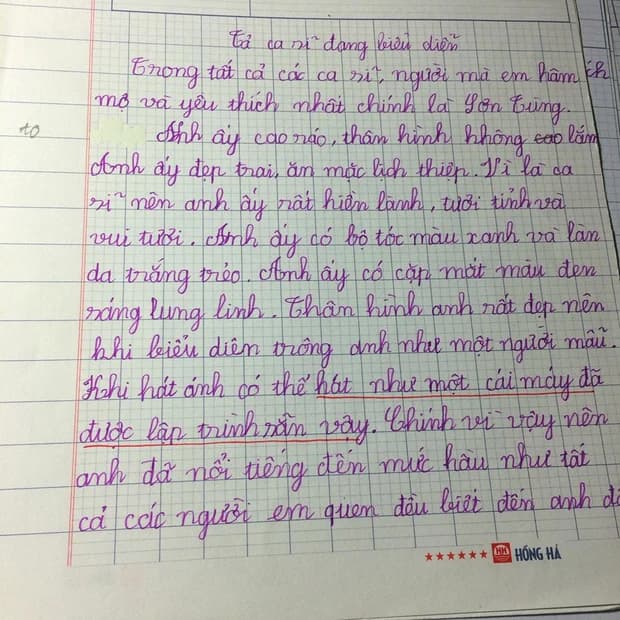 Tả ca sĩ đang biểu diễn
Trong tất cả các ca sĩ, người mà em hâm
mộ và yêu thích nhất chính là Sơn Tùng.
to
Anh ấy cao ráo, thân hình không cao lắm
Anh ấy đẹp trai, ăn mặc lịch thiệp. Vì là ca
sĩ nên anh ấy rất hiền lành, tươi tỉnh và
vui tươi. Anh ấy có bộ tóc màu xanh và làn
da trắng trẻo. Anh ấy có cặp mắt màu đen
sáng lung linh. Thân hình anh rất đẹp nên
khi biểu diễn trông anh như một người mẫu.
Khi hát ánh có thể hát như một cái máy đã
được lập trình sẵn vậy. Chính vì vậy nên
anh đã nổi tiếng đến mức hầu như tất
cả các người em quen đều biết đến anh
★★★★★★ HH HỒNG HÀ